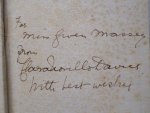 For
Miss Gwen Massey
from
Clara Novello Davies
With best wishes